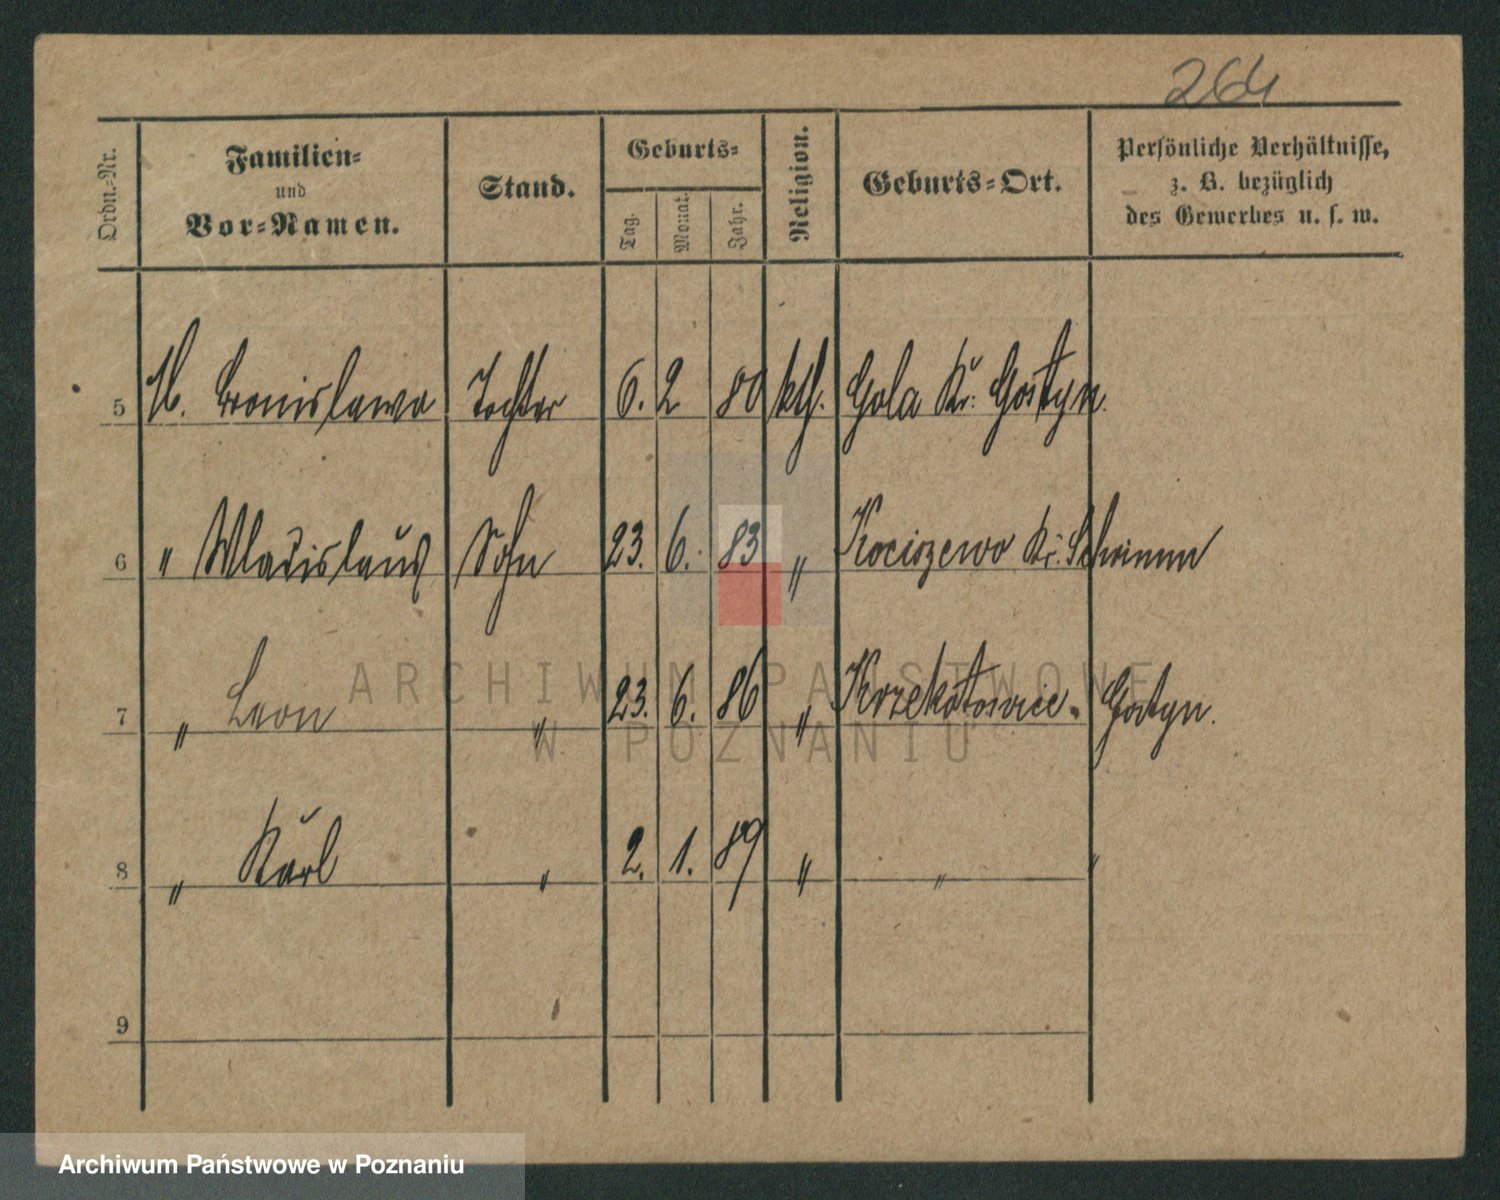 264
Ordn.-Nr. Familien- und Vor-Namen. Stand. Geburts- Tag. Monat. Jahr. Religion. Geburts-Ort. Persönliche Verhältnisse, z. B. bezüglich des Gewerbes u. s. w.
5 Bronislawa Tochter 6. 2 80 kth. Gola Kr. Gostyn.
6 " Wladislaus Sohn 23. 6. 83 " Kociszewo Kr. Schrimm
7 " Leon " 23. 6. 86 " Krzekotowice. Gostyn.
8 " Karl " 2. 1. 89 " " "
9
ARCHIWUM PAŃSTWOWE
W POZNANIU
Archiwum Państwowe w Poznaniu